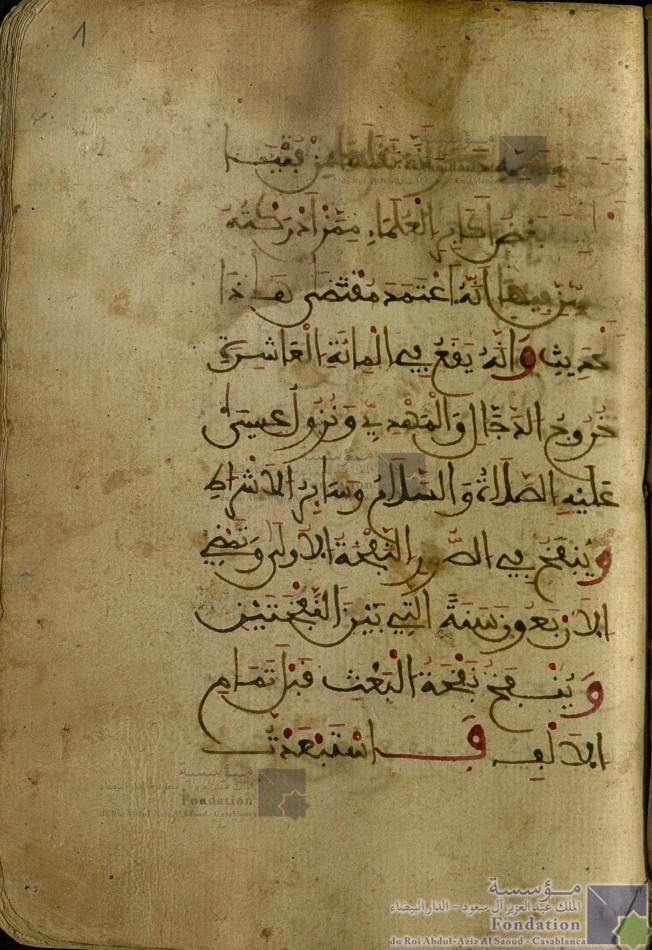 1
من فتيا
بَعْضُ أَكَابِرِ الْعُلَمَاءِ مِمَّنْ أَدْرَكْتُهُ
فِيهَا أَنَّهُ اعْتَمَدَ مُقْتَضَى هَذَا
الحَدِيثِ وَأَنَّهُ يَقَعُ فِي الْمِائَةِ الْعَاشِرَةِ
خُرُوجُ الدَّجَّالِ وَالْمَهْدِيِّ وَنُزُولُ عِيسَى
عَلَيْهِ الصَّلَاةُ وَالسَّلَامُ وَسَائِرُ الْأَشْرَاطِ
وَيُنْفَخُ فِي الصُّورِ النَّفْخَةُ الْأُولَى وَتَمْضِي
الْأَرْبَعُونَ سَنَةً الَّتِي بَيْنَ النَّفْخَتَيْنِ
وَيُنْفَخُ نَفْخَةُ الْبَعْثِ قَبْلَ تَمَامِ
الْأَلْفِ فَاسْتَبْعَدْتُ
مؤسسة
الملك عبد العزيز آل سعود - الدار البيضاء
Fondation
du Roi Abdul-Aziz Al Saoud - Casablanca